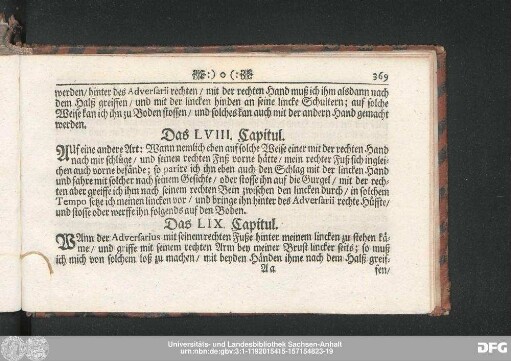 :) o (:
369
werden/ hinter des Adversarii rechten / mit der rechten Hand muß ich ihm alsdann nach
dem Halß greiffen / und mit der lincken hinden an seine lincke Schultern; auf solche
Weise kan ich ihn zu Boden stossen / und solches kan auch mit der andern Hand gemacht
werden.
Das LVIII. Capitul.
AUf eine andere Art: Wann nemlich eben auf solche Weise einer mit der rechten Hand
nach mir schlüge / und seinen rechten Fuß vorne hätte / mein rechter Fuß sich inglei-
chen auch vorne befände; so parire ich ihn eben auch den Schlag mit der lincken Hand
und fahre mit solcher nach seinem Gesichte / oder stosse ihn auf die Gurgel / mit der rech-
ten aber greiffe ich ihn nach seinem rechten Bein zwischen den lincken durch / in solchem
Tempo setze ich meinen lincken vor / und bringe ihn hinter des Adversarii rechte Hüffte/
und stosse oder werffe ihn folgends auf den Boden.
Das LIX. Capitul.
WAnn der Adversarius mit seinem rechten Fusse hinter meinem lincken zu stehen kä-
me / und griffe mit seinem rechten Arm bey meiner Brust lincker seits; so muß
ich mich von solchem loß zu machen / mit beyden Händen ihme nach dem Halß greif-
Aa
fen/
Universitäts- und Landesbibliothek Sachsen-Anhalt
urn:nbn:de:gbv:3:1-1192015415-157154833-19
DFG